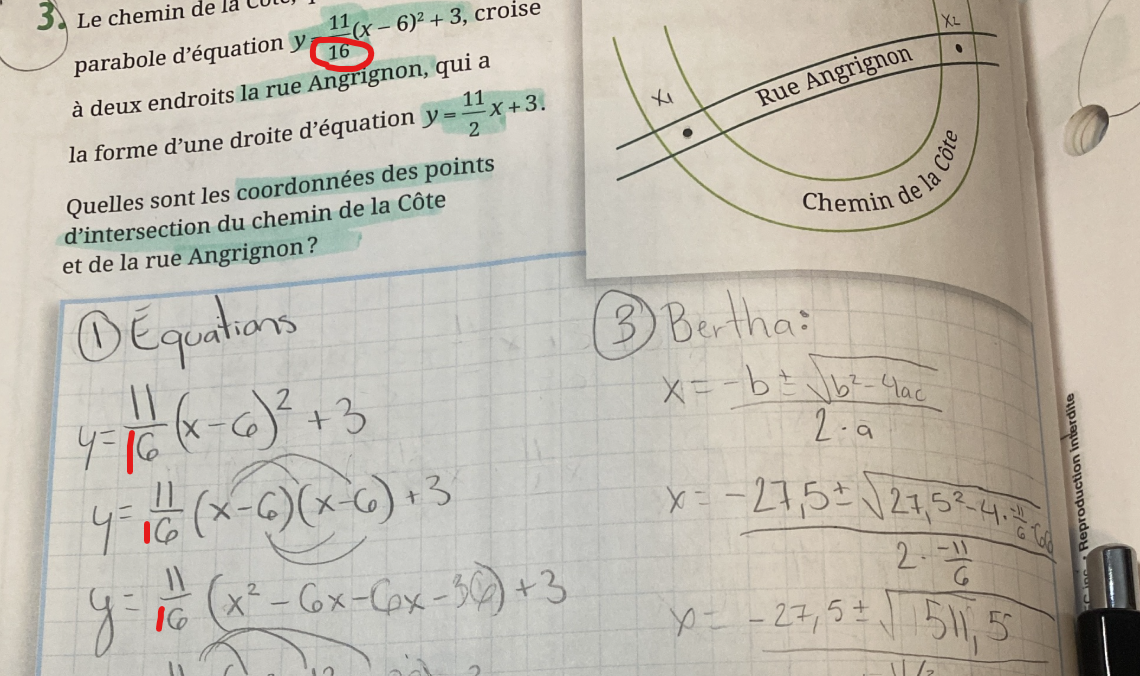 3. Le chemin de la
parabole d'équation y = 11/16 (x – 6)² + 3, croise
à deux endroits la rue Angrignon, qui a
la forme d'une droite d'équation y = 11/2 x + 3.
Quelles sont les coordonnées des points
d'intersection du chemin de la Côte
et de la rue Angrignon ?
x₁
x₂
Rue Angrignon
Chemin de la Côte
① Équations
y = 11/16 (x - 6)² + 3
y = 11/16 (x - 6)(x - 6) + 3
y = 11/16 (x² - 6x - 6x - 36) + 3
③ Bertha:
x = -b ± √b² - 4ac / 2·a
x = -27,5 ± √27,5² - 4 · -11/6 · / 2 · -11/6
x = -27,5 ± √1511,5
Reproduction interdite